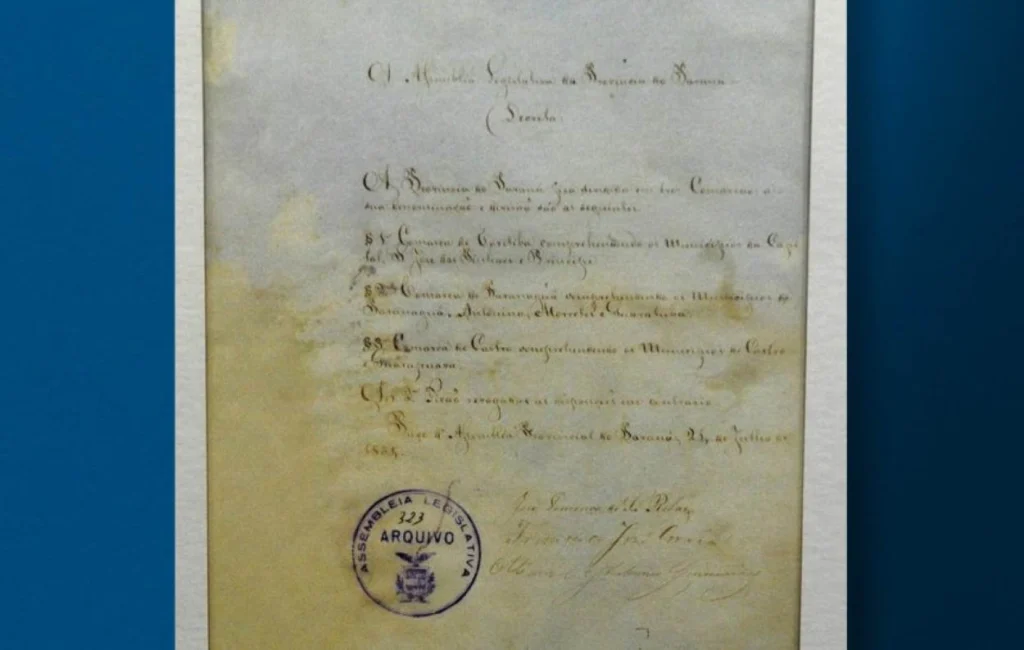 A Assembléa Legislativa da Provincia do Paraná
Decreta:
A Provincia do Paraná fica dividida em tres Comarcas, a
sua denominação e divisão são as seguintes
§ 1º Comarca de Coritiba comprehendendo os Municipios da Capi
tal, S. José dos Pinhaes e Principe
§ 2º Comarca de Paranaguá comprehendendo os Municipios de
Paranaguá, Antonina, Morretes e Guaratuba
§ 3º Comarca de Castro comprehendendo os Municipios de Castro
e Guarapuava.
Art 2º Ficão revogadas as disposições em contrario
Paço d'Assembléa Provincial do Paraná, de Julho de
José
Francisco José Correia
ASSEMBLEIA LEGISLATIVA
323
ARQUIVO